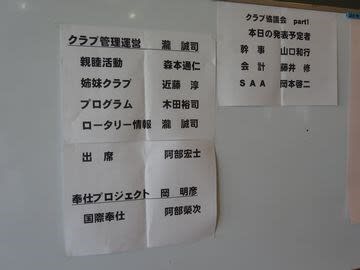 クラブ管理運営 瀧 誠司
親睦活動 森本通仁
姉妹クラブ 近藤 淳
プログラム 木田裕司
ロータリー情報 瀧 誠司
出 席 阿部宏士
奉仕プロジェクト 岡 明彦
国際奉仕 阿部榮次
クラブ協議会 part1
本日の発表予定者
幹 事 山口和行
会 計 藤井 修
SAA 岡本啓二